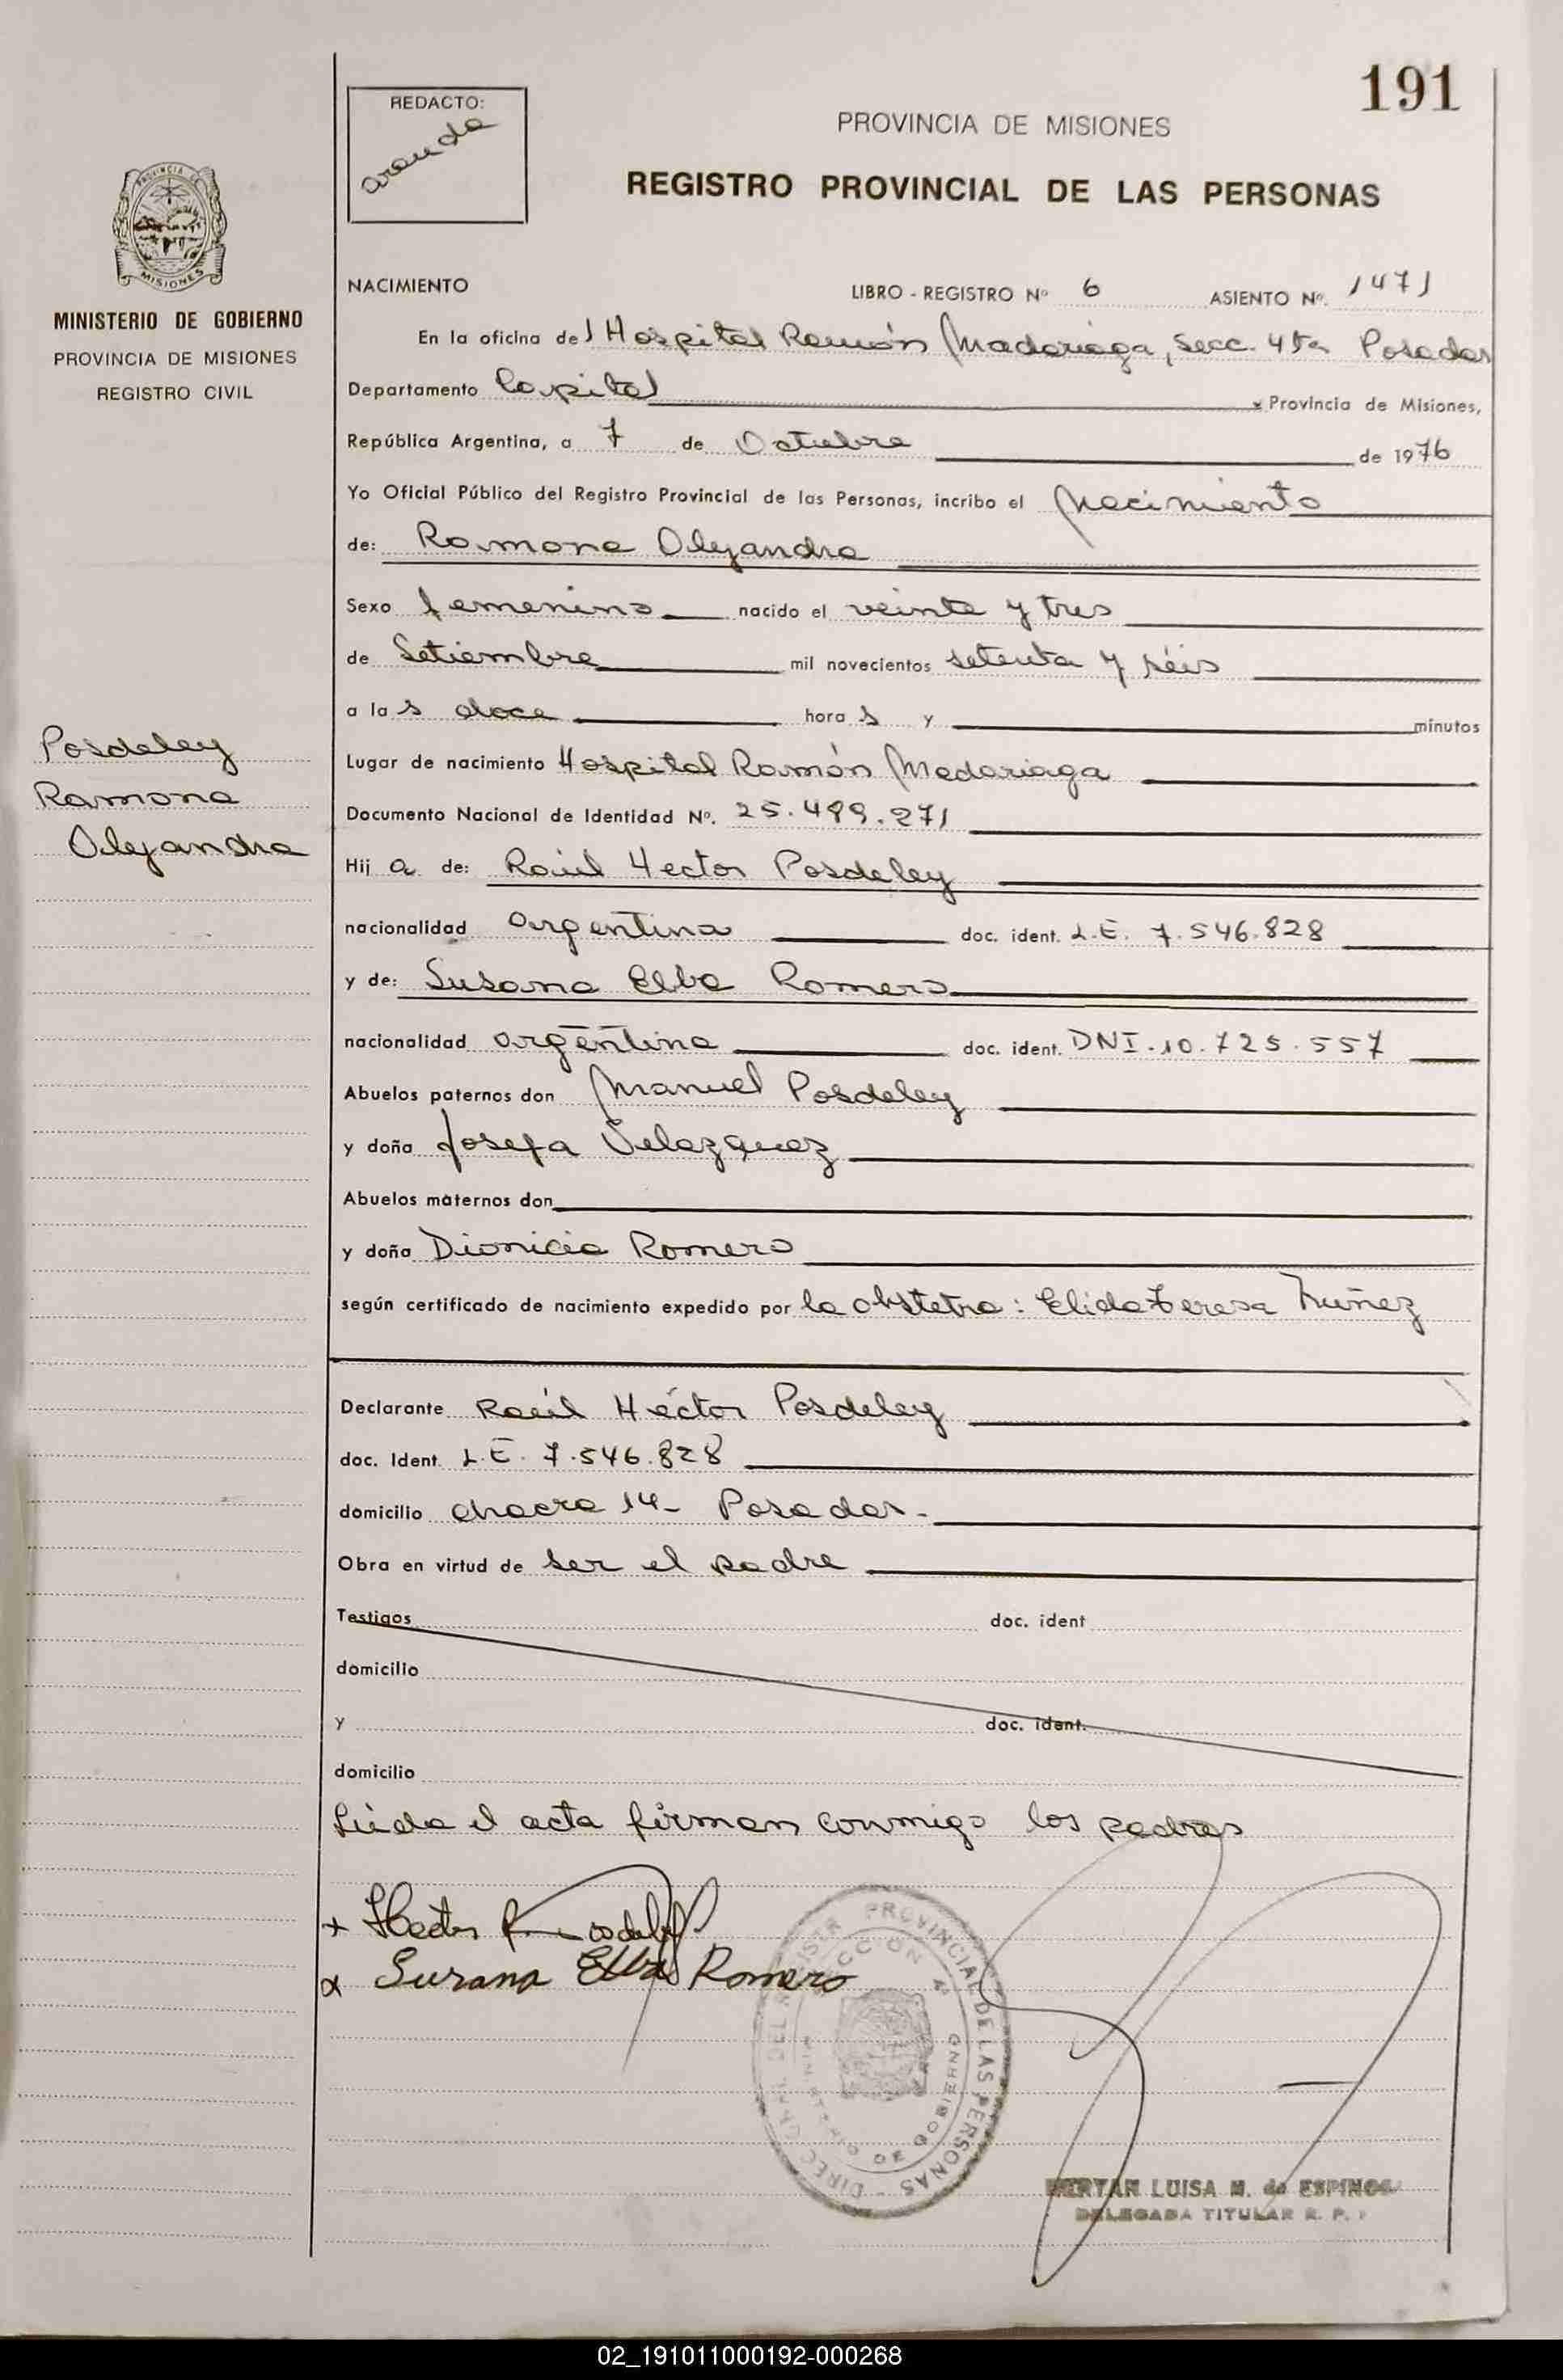 191
REDACTO:
Aranda
PROVINCIA DE MISIONES
REGISTRO PROVINCIAL DE LAS PERSONAS
PROVINCIA DE
MISIONES
MINISTERIO DE GOBIERNO
PROVINCIA DE MISIONES
REGISTRO CIVIL
NACIMIENTO LIBRO - REGISTRO Nº 6 ASIENTO Nº. 1471
En la oficina del Hospital Ramón Madariaga, Secc. 4ta Posadas
Departamento Capital Provincia de Misiones,
República Argentina, a 7 de Octubre de 1976
Yo Oficial Público del Registro Provincial de las Personas, incribo el Nacimiento
de: Ramona Alejandra
Sexo femenino nacido el veinte y tres
de Setiembre mil novecientos setenta y séis
a las doce horas y minutos
Lugar de nacimiento Hospital Ramón Madariaga
Posdeley
Ramona
Alejandra
Documento Nacional de Identidad Nº. 25.499.271
Hija de: Raúl Hector Posdeley
nacionalidad argentina doc. ident. L.E. 7.546.828
y de: Susana Elba Romero
nacionalidad argentina doc. ident. DNI.10.725.557
Abuelos paternos don Manuel Posdeley
y doña Josefa Velazquez
Abuelos maternos don
y doña Dionicia Romero
según certificado de nacimiento expedido por la obstetra: Elida Teresa Nuñez
Declarante Raúl Héctor Posdeley
doc. Ident. L.E. 7.546.828
domicilio chacra 14- Posadas.-
Obra en virtud de ser el padre
Testigos doc. ident
domicilio
y doc. ident.
domicilio
Leida el acta firman conmigo los padres
x Hector R. Posdeley
x Susana Elba Romero
PROVINCIAL DE LAS PERSONAS
SECCION 4ª
DE GOBIERNO
LUISA M. de ESPINOSA
DELEGADA TITULAR R. P.
02_191011000192-000268